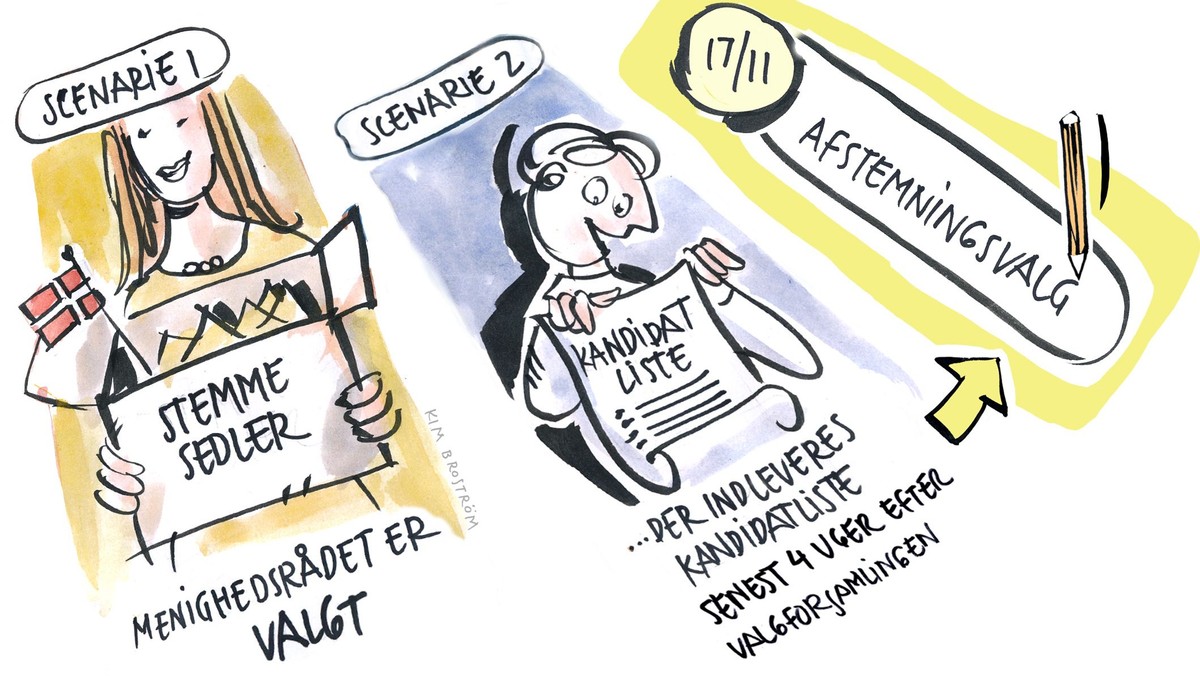 SCENARIE 1
STEMME
SEDLER
MENIGHEDSRÅDET ER
VALGT
KIM BROSTRÖM
SCENARIE 2
KANDIDAT
LISTE
...DER INDLEVERES
KANDIDATLISTE
SENEST 4 UGER EFTER
VALGFORSAMLINGEN
17/11
AFSTEMNINGSVALG